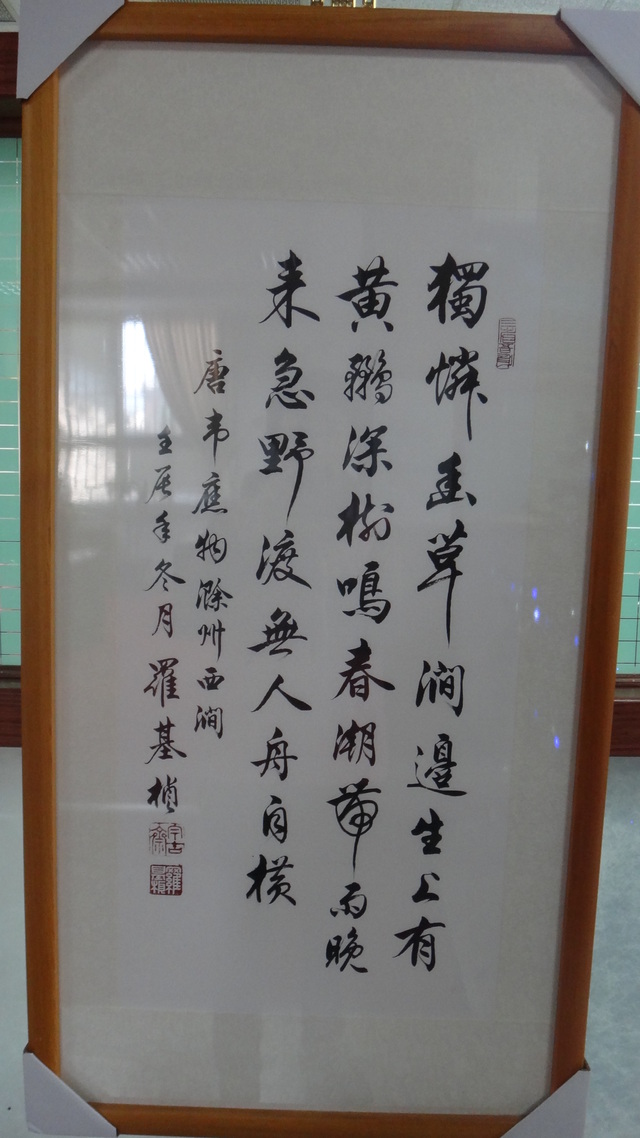 獨憐幽草澗邊生上有
黃鸝深樹鳴春潮帶雨晚
来急野渡無人舟自橫
唐韦應物滁州西澗
壬辰年冬月羅基楨